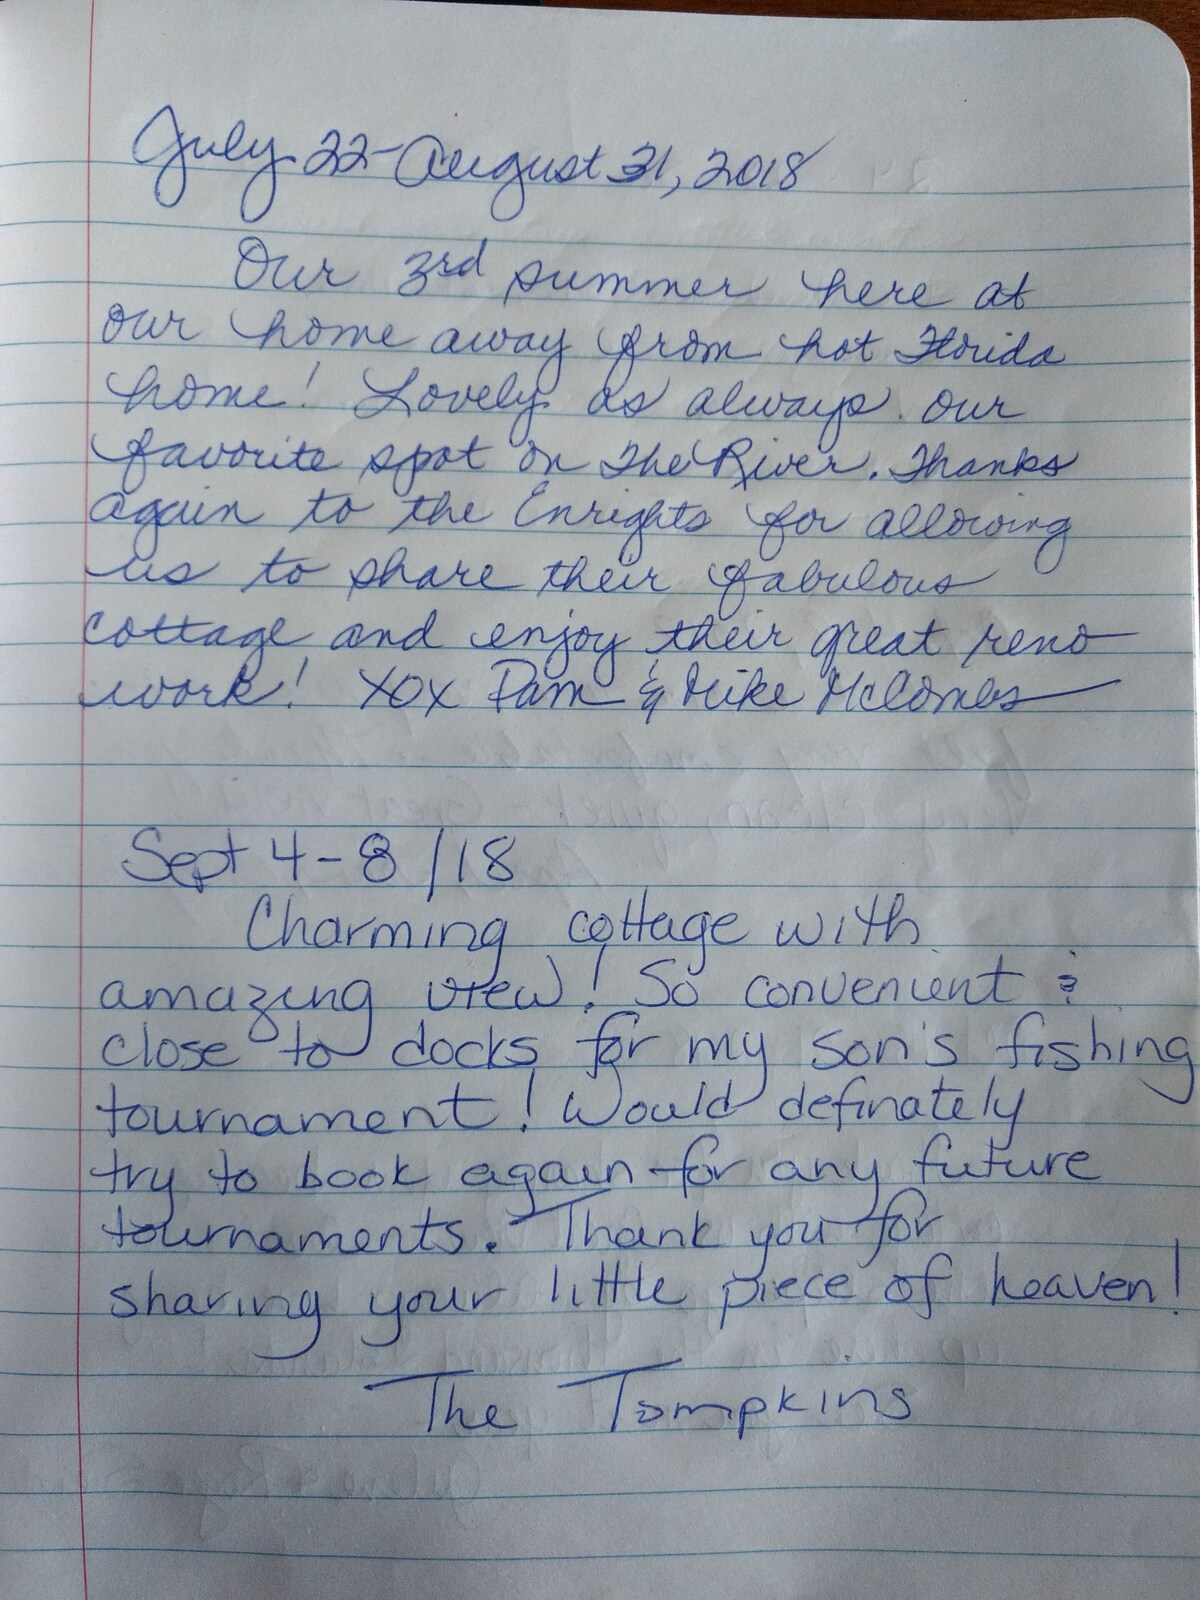 July 22-August 31, 2018
Our 3rd summer here at
our home away from hot Florida
home! Lovely as always. Our
favorite spot on The River. Thanks
again to the Enrights for allowing
us to share their fabulous
cottage and enjoy their great reno
work! XOX Pam & Mike McCombs
Sept 4-8/18
Charming cottage with
amazing view! So convenient &
close to docks for my son's fishing
tournament! Would definately
try to book again for any future
tournaments. Thank you for
sharing your little piece of heaven!
The Tompkins